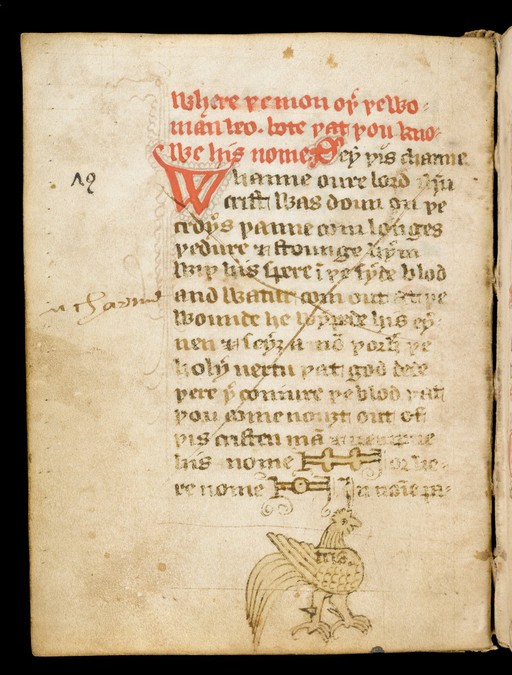 Where ye mon oy ye wo-
man beo. bote yat you kno-
we his nome. Sey yis charme
Whanne oure lord ihu
crist was doun on ye
croys yanne com longes
yedure & stounge hym
wiy his spere ī ye syde blod
and watur com out at ye
wounde he wypede his ey-
nen & seyȝ yorh ye
holy vertu yat god dede
yere y coniure ye blod yat
you come nouȝt out of
yis cristen mā &
his nome or he-
re nome In noīe pa-
tris.
19
a charme